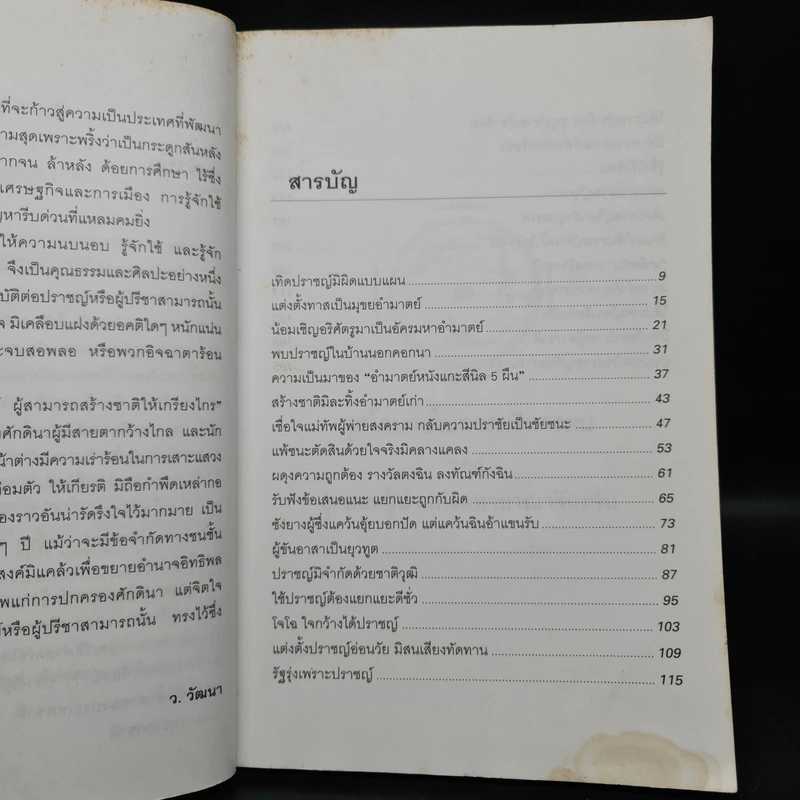 ที่จะก้าวสู่ความเป็นประเทศที่พัฒนา
ามสุดเพราะพริ้งว่าเป็นกระดูกสันหลัง
ากจน ล้าหลัง ด้อยการศึกษา ไร้ซึ่ง
เศรษฐกิจและการเมือง การรู้จักใช้
ญหารีบด่วนที่แหลมคมยิ่ง
ให้ความนบนอบ รู้จักใช้ และรู้จัก
จึงเป็นคุณธรรมและศิลปะอย่างหนึ่ง
บัติต่อปราชญ์หรือผู้ปรีชาสามารถนั้น
จ มิเคลือบแฝงด้วยอคติใดๆ หนักแน่น
ะจบสอพลอ หรือพวกอิจฉาตาร้อน
ผู้สามารถสร้างชาติให้เกรียงไกร"
ศักดินาผู้มีสายตากว้างไกล และนัก
น้าต่างมีความเร่าร้อนในการเสาะแสวง
่อมตัว ให้เกียรติ มิถือกำพืดเหล่ากอ
องราวอันน่ารัดรึงใจไว้มากมาย เป็น
ๆ ปี แม้ว่าจะมีข้อจำกัดทางชนชั้น
สงค์มิแคล้วเพื่อขยายอำนาจอิทธิพล
พแก่การปกครองศักดินา แต่จิตใจ
์หรือผู้ปรีชาสามารถนั้น ทรงไว้ซึ่ง
ว. วัฒนา
สารบัญ
เทิดปราชญ์มิผิดแบบแผน 9
แต่งตั้งทาสเป็นมุขยอำมาตย์ 15
น้อมเชิญอริศัตรูมาเป็นอัครมหาอำมาตย์ 21
พบปราชญ์ในบ้านนอกคอกนา 31
ความเป็นมาของ "อำมาตย์หนังแกะสีนิล 5 ผืน" 37
สร้างชาติมิละทิ้งอำมาตย์เก่า 43
เชื่อใจแม่ทัพผู้พ่ายสงคราม กลับความปราชัยเป็นชัยชนะ 47
แพ้ชนะตัดสินด้วยใจจริงมิคลางแคลง 53
ผดุงความถูกต้อง รางวัลตงฉิน ลงทัณฑ์กังฉิน 61
รับฟังข้อเสนอแนะ แยกแยะถูกกับผิด 65
ซังยางผู้ซึ่งแคว้นอุ้ยบอกปัด แต่แคว้นฉินอ้าแขนรับ 73
ผู้ขันอาสาเป็นยุวทูต 81
ปราชญ์มิจำกัดด้วยชาติวุฒิ 87
ใช้ปราชญ์ต้องแยกแยะดีชั่ว 95
โจโฉ ใจกว้างได้ปราชญ์ 103
แต่งตั้งปราชญ์อ่อนวัย มิสนเสียงทัดทาน 109
รัฐรุ่งเพราะปราชญ์ 115